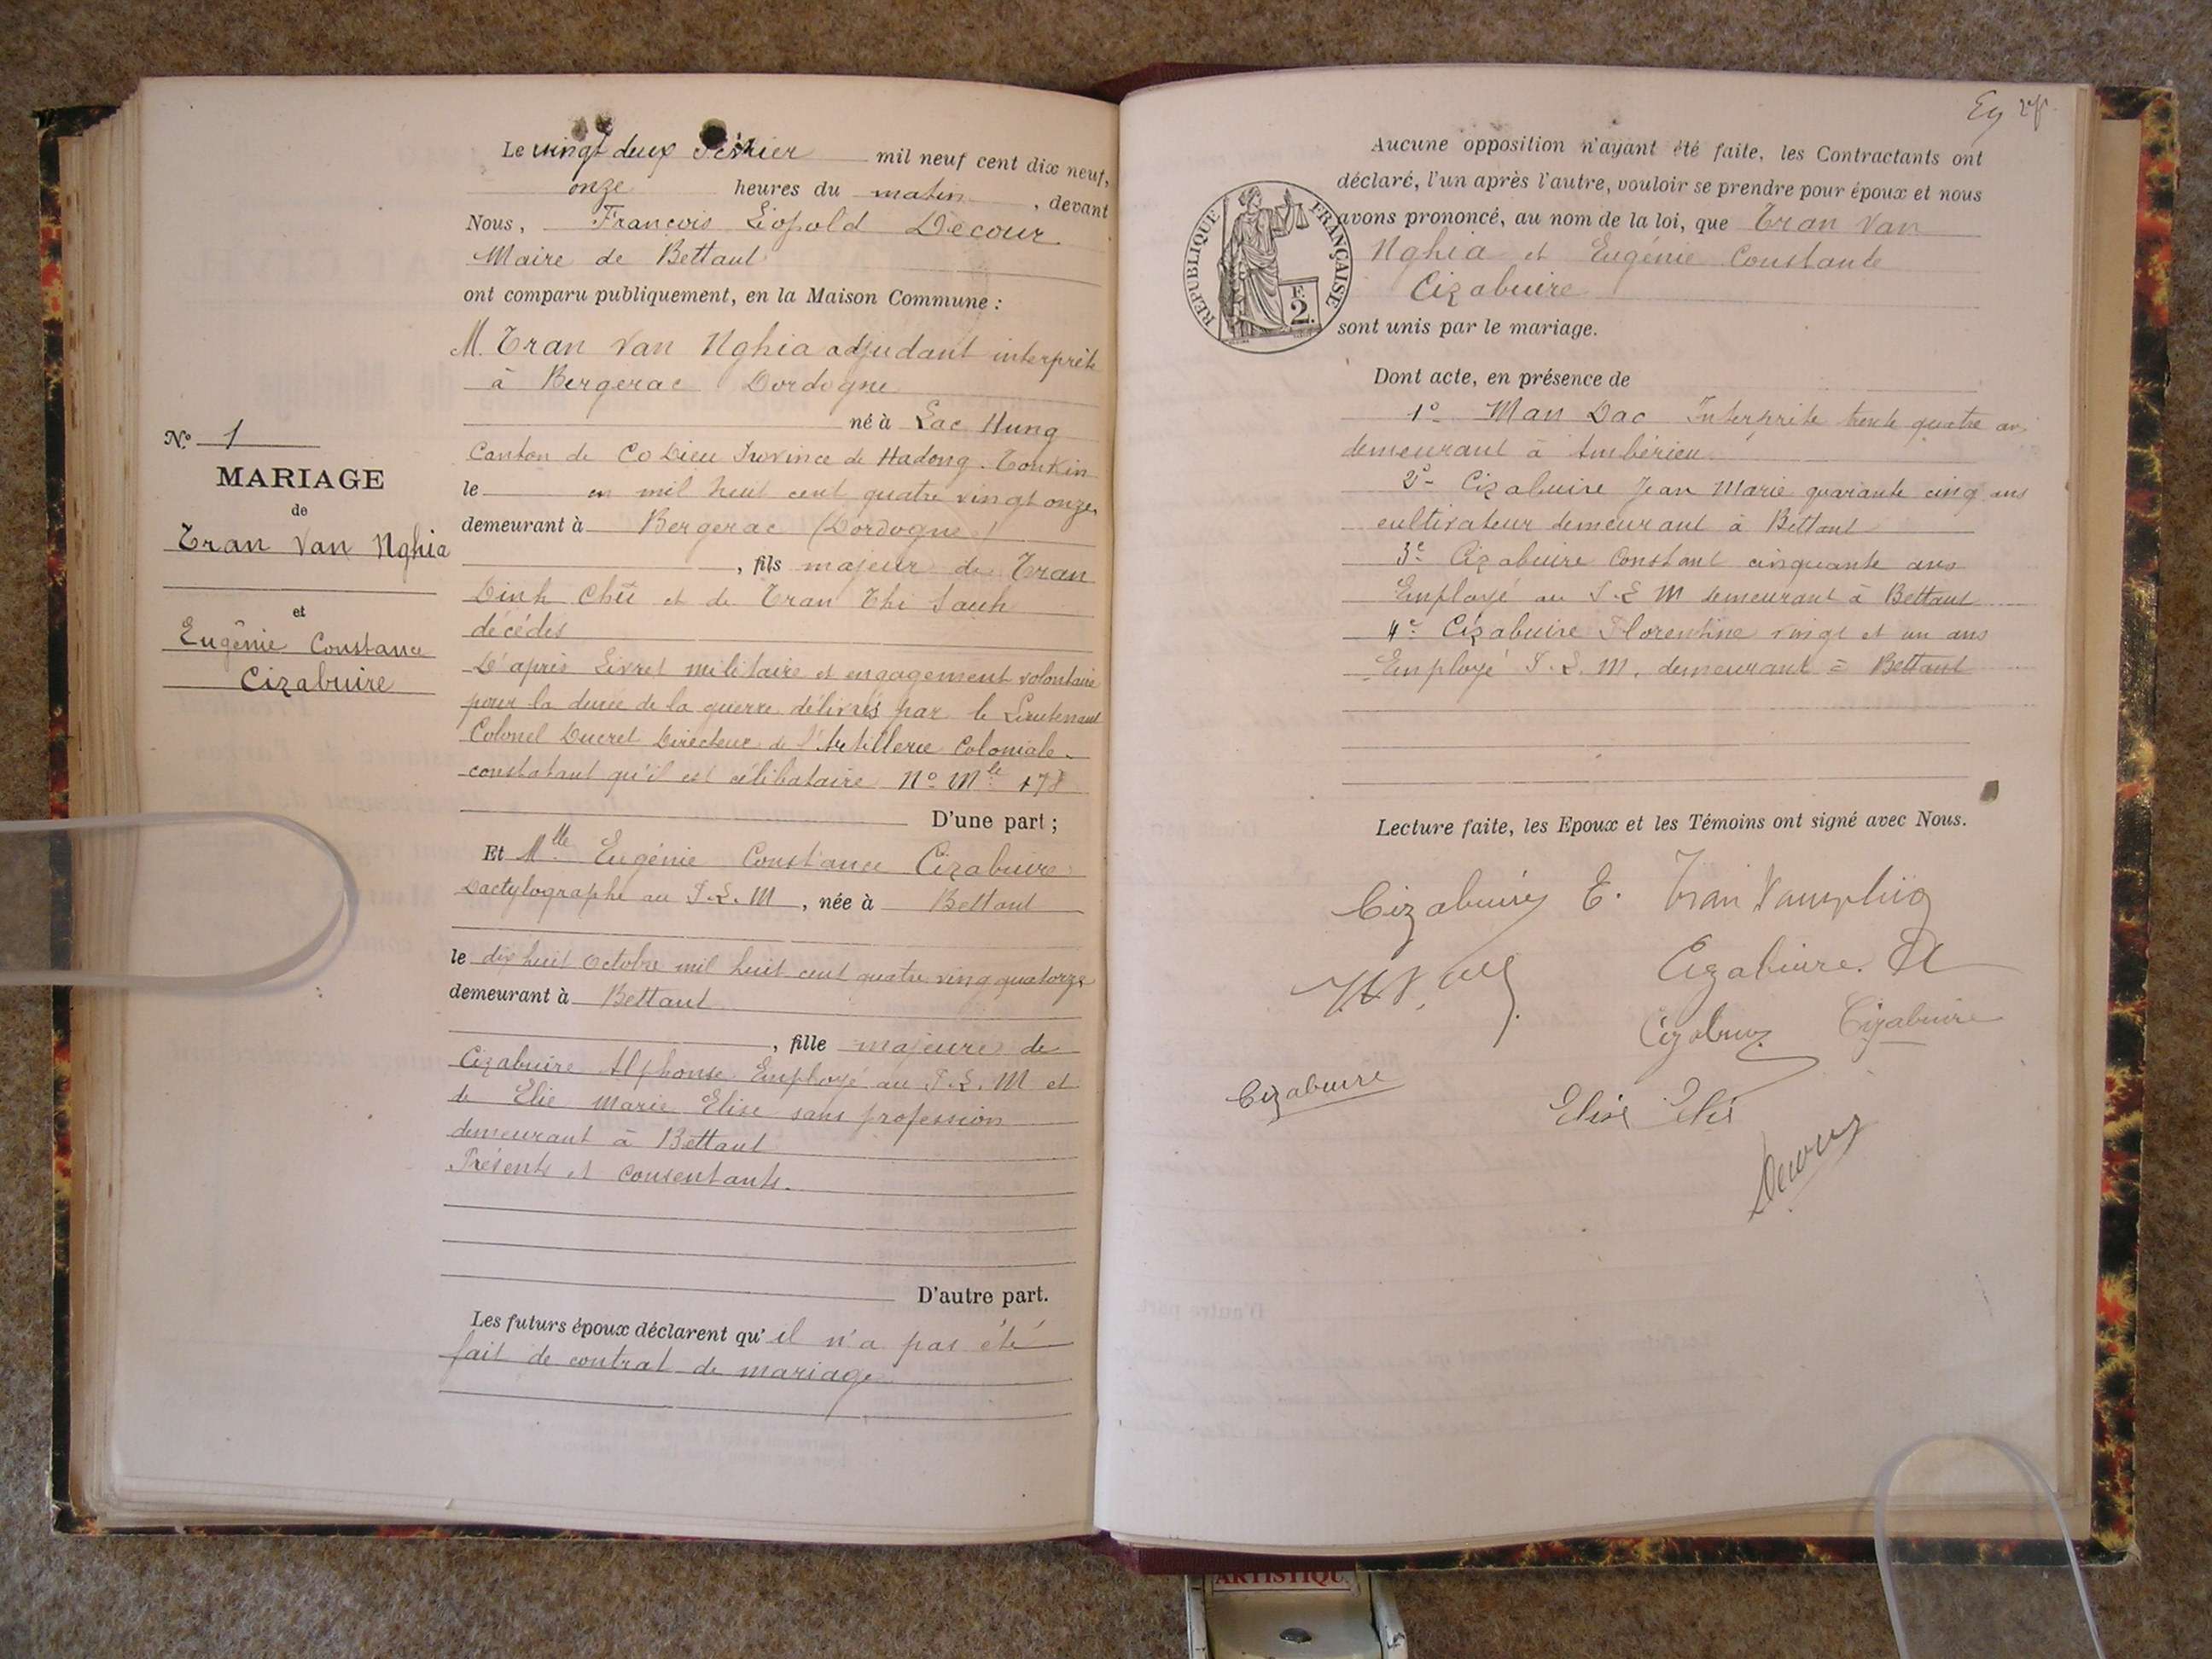 Le vingt deux Février mil neuf cent dix neuf,
onze heures du matin, devant
Nous, François Léopold Decour
Maire de Bettant
ont comparu publiquement, en la Maison Commune :
M. Tran Van Nghia adjudant interprète
à Bergerac Dordogne
né à Lac Hung
Canton de Co Dieu Province de Hadong. Tonkin
le en mil huit cent quatre vingt onze
demeurant à Bergerac (Dordogne)
, fils majeur de Tran
Dinh Chü et de Tran Thi Sauh
décédés
D'après Livret militaire et engagement volontaire
pour la durée de la guerre délivrés par le Lieutenant
Colonel Ducret Directeur de l'Artillerie Coloniale
constatant qu'il est célibataire N° Mle 178
D'une part ;
N° 1
MARIAGE
de
Tran Van Nghia
et
Eugénie Constance
Cizabuire
Et Mlle Eugénie Constance Cizabuire
Dactylographe au P.L.M, née à Bettant
le dix huit Octobre mil huit cent quatre ving quatorze
demeurant à Bettant
, fille majeure de
Cizabuire Alphonse Employé au P.L.M et
de Elie Marie Elise sans profession
demeurant à Bettant
Présents et consentants.
D'autre part.
Les futurs époux déclarent qu'il n'a pas été
fait de contrat de mariage
Aucune opposition n'ayant été faite, les Contractants ont
déclaré, l'un après l'autre, vouloir se prendre pour époux et nous
avons prononcé, au nom de la loi, que Tran Van
Nghia et Eugénie Constante
Cizabuire
sont unis par le mariage.
REPUBLIQUE FRANÇAISE
F.
2.
Dont acte, en présence de
1° Man Dac Interprète trente quatre ans
demeurant à Ambérieu
2° Cizabuire Jean Marie quarante cinq ans
cultivateur demeurant à Bettant
3e Cizabuire Constant cinquante ans
Employé au P.L M demeurant à Bettant
4e Cizabuire Florentine vingt et un ans
Employé P.L.M. demeurant à Bettant
Lecture faite, les Epoux et les Témoins ont signé avec Nous.
Cizabuire E. Tran Van
Cizabuire. A
Cizabuire
Cizabuire
Elise Elie
Decour
ARTISTIQU